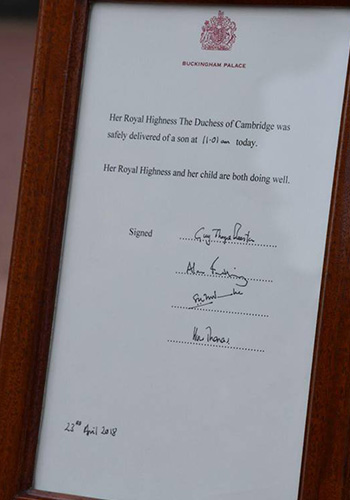 BUCKINGHAM PALACE
Her Royal Highness The Duchess of Cambridge was
safely delivered of a son at 11-01 am today.
Her Royal Highness and her child are both doing well.
Signed Guy Thorpe-Beeston
Alan
Huw Thomas
23rd April 2018